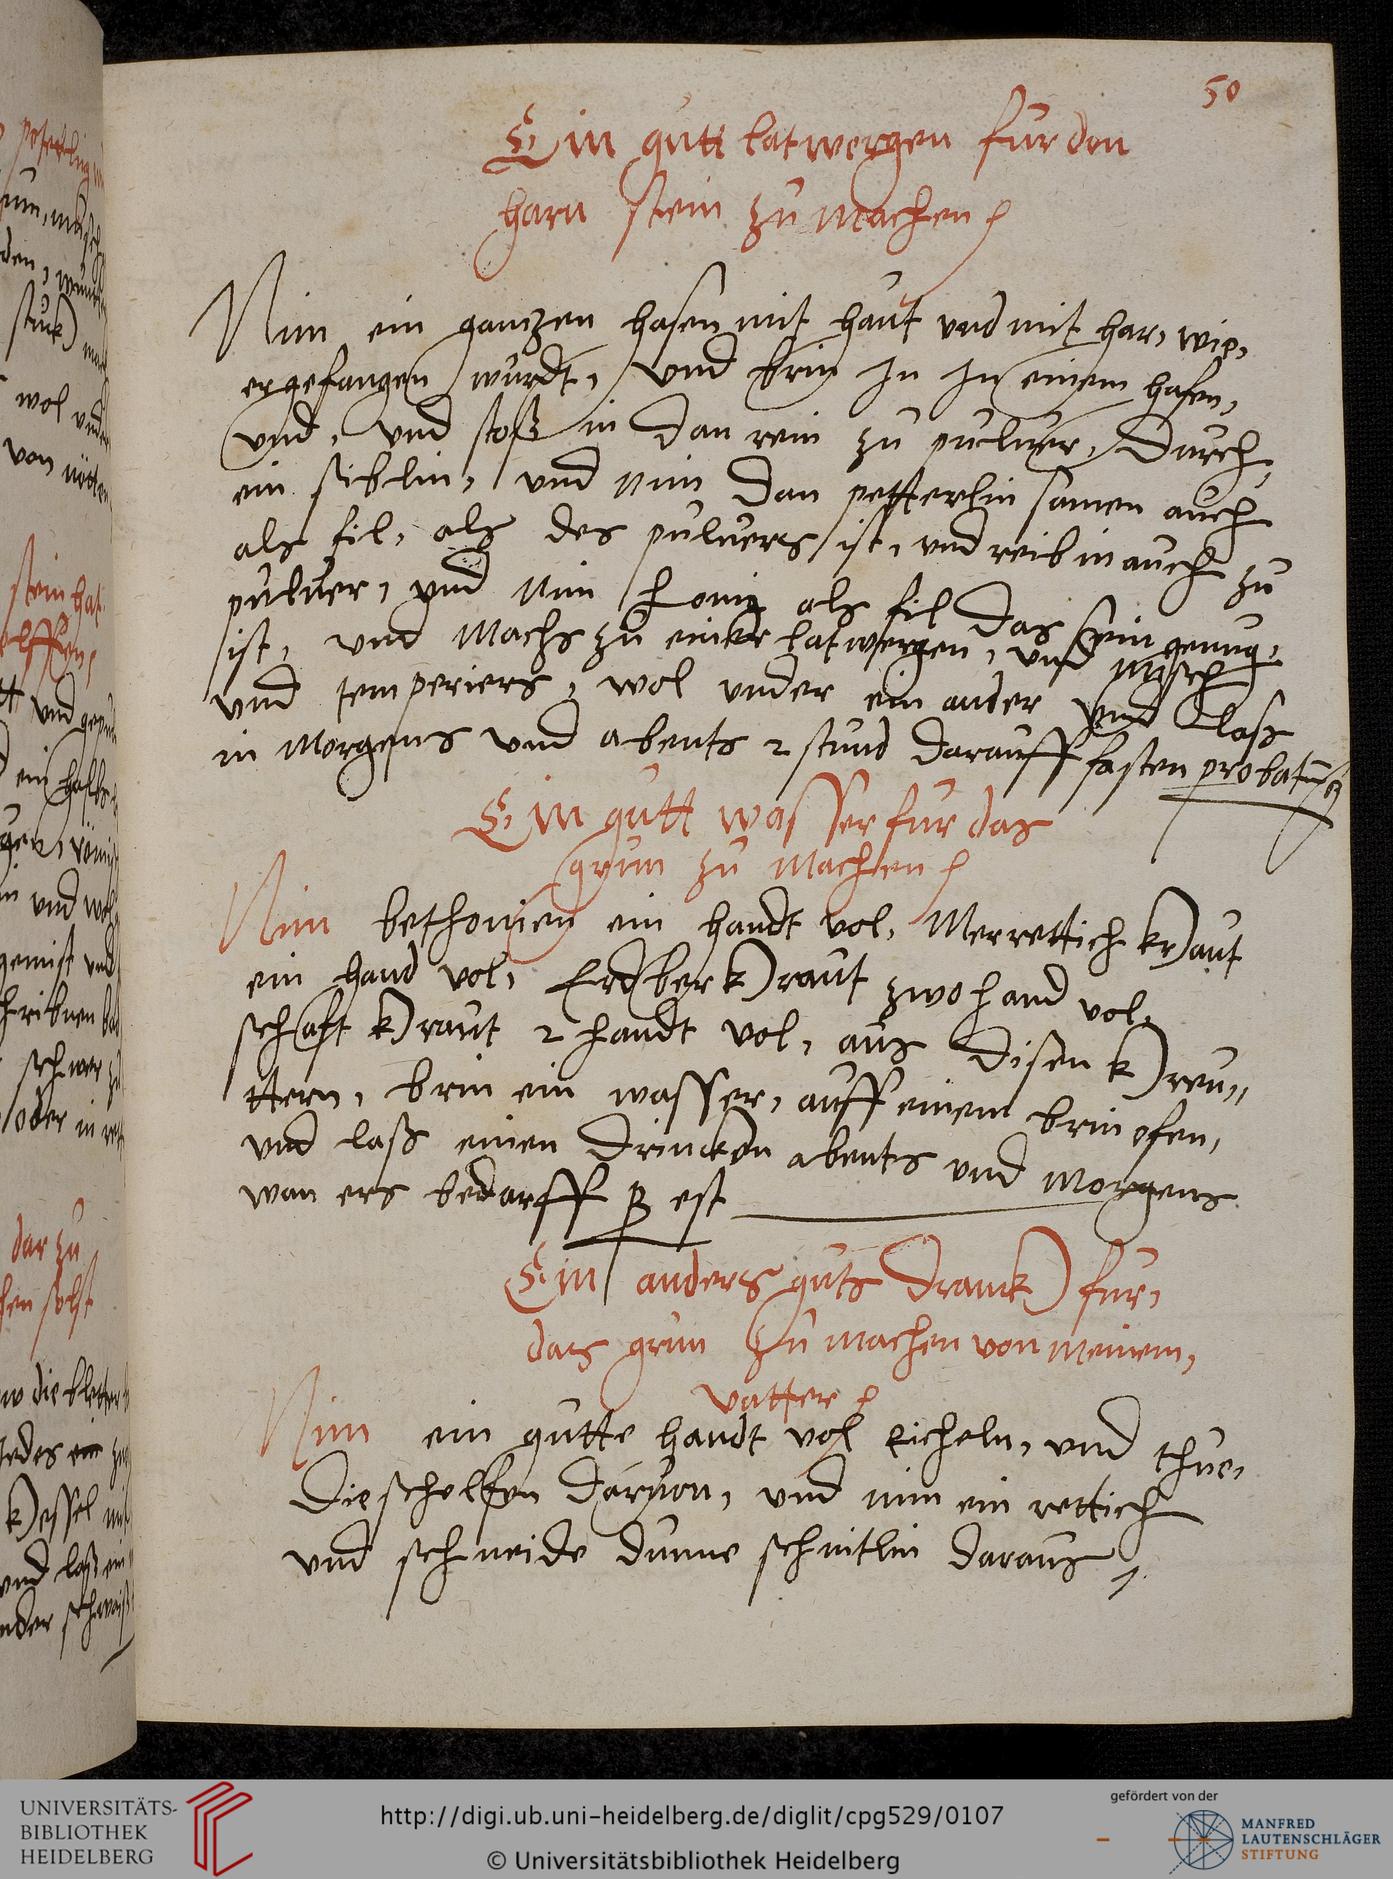 50
Ein gutt latwergen fur den
harn stein zu machen
Nim ein gantzen hasen mit haut vnd mit har, wie,
er gefangen wurdt, vnd brin in in einem hafen,
vnd, vnd stoß in dan rein zu puluer, durch,
ein siblin, vnd nim dan petterlin samen auch
als fil, als des puluers ist, vnd reib in auch zu
puluer, vnd nim honig als fil das sein genug,
ist, vnd machs zu einer latwergen, vnd misch
vnd temperiers, wol vnder ein ander vnd laß
in morgens vnd abents 2 stund darauff fasten probatum
Ein gutt wasser fur das
grim zu machen
Nim bethonien ein handt vol, Merrettich kraut
ein hand vol, Erdber kraut zwo hand vol,
schaft kraut 2 handt vol, aus disen kreu,,
ttern, brin ein wasser, auff einem brin ofen,
vnd laß einen drincken abents vnd morgens
wan ers bedarff p est
Ein anders guts dranck fur,
das grim zu machen von meinem,
vatter
Nim ein gutte handt vol eicheln, vnd thue,
die schelffen daruon, vnd nim ein rettich
vnd schneide dunne schnitlin daraus,
stein hat
helffen,
wol vnd
von nöten
stuck
dar zu
kessel mit
vnd laß ein
oder in
UNIVERSITÄTS-
BIBLIOTHEK
HEIDELBERG
http://digi.ub.uni-heidelberg.de/diglit/cpg529/0107
© Universitätsbibliothek Heidelberg
gefördert von der
MANFRED
LAUTENSCHLÄGER
STIFTUNG